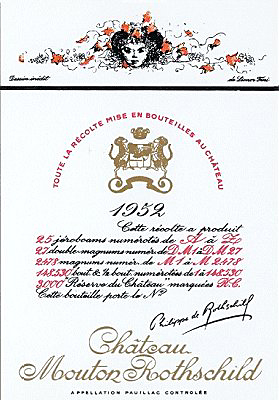 Dessin inédit
de Léonor Fini
TOUTE LA RÉCOLTE MISE EN BOUTEILLES AU CHÂTEAU
1952
Cette récolte a produit
25 jéroboams numérotés de A à Z
27 double magnums numér. de DM1 à DM 27
2478 magnums numér. de M1 à M 2478
148.530 bout. & ½ bout. numérotées de 1 à 148.530
3000 Réserve du Château marquées R.C.
Cette bouteille porte le N°
Philippe de Rothschild
Château
Mouton Rothschild
APPELLATION PAUILLAC CONTROLÉE